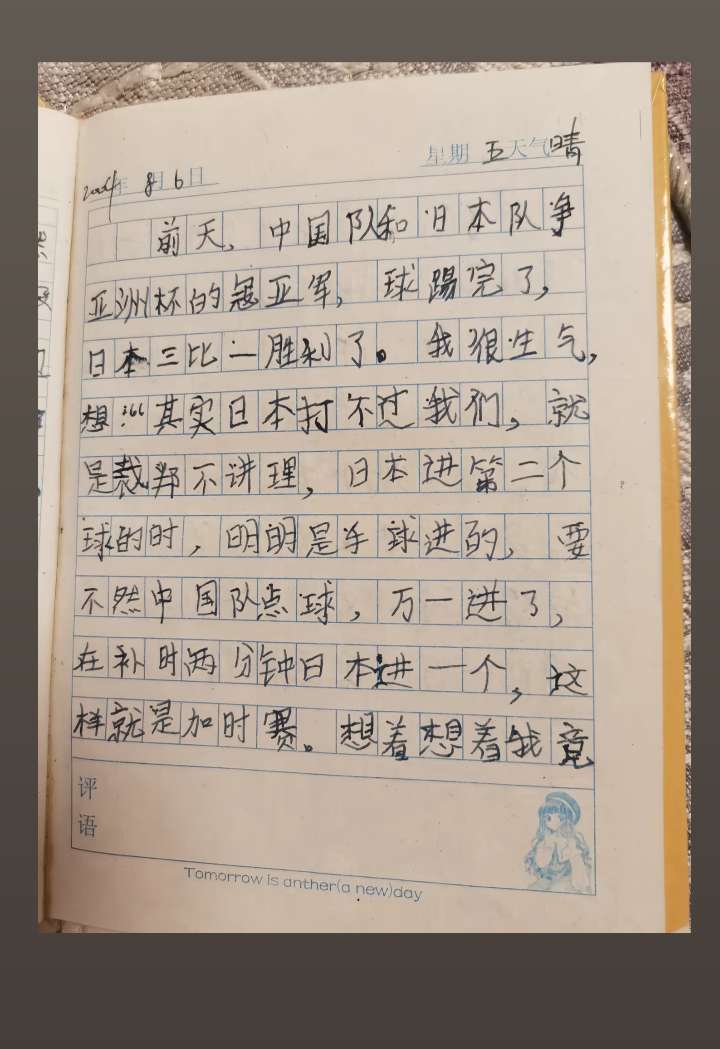 2004年 8月 6日 星期 五 天气 晴
前天，中国队和日本队争
亚洲杯的冠亚军，球踢完了，
日本三比一胜利了。我很生气，
想:“其实日本打不过我们，就
是裁判不讲理，日本进第二个
球的时，明明是手球进的，要
不然中国队点球，万一进了，
在补时两分钟日本进一个，这
样就是加时赛。想着想着我竟
评
语
Tomorrow is anther(a new)day